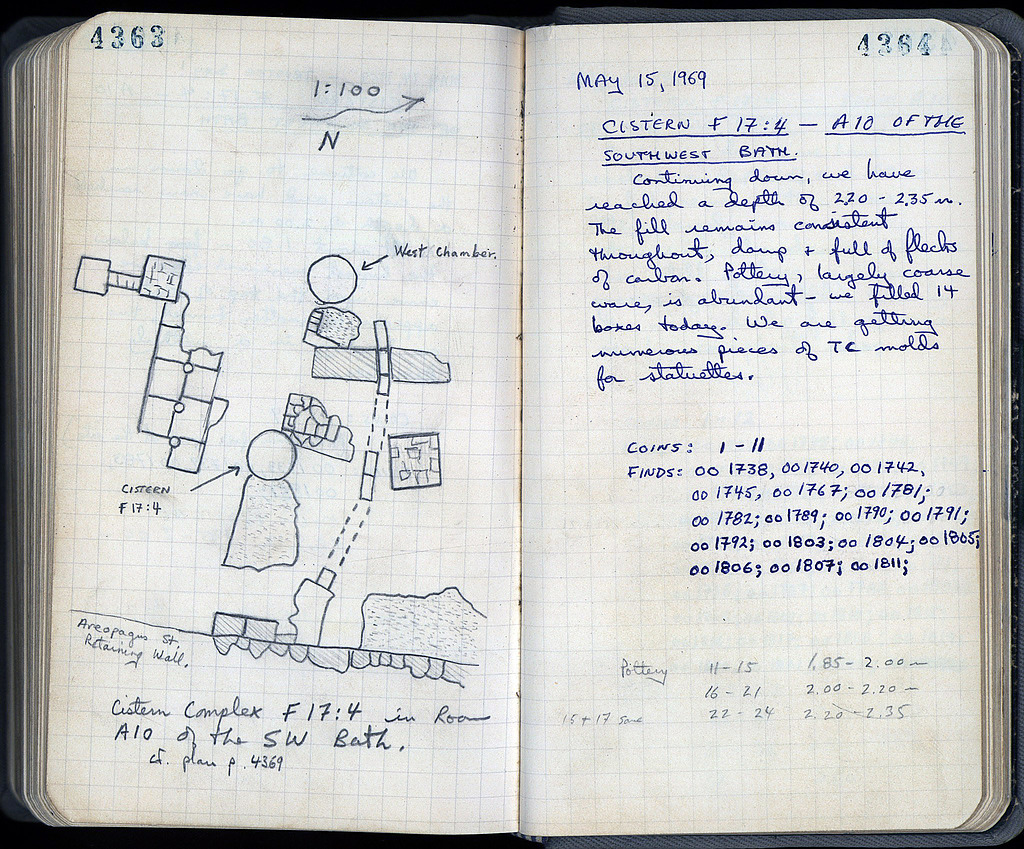 4363
1:100
N
West Chamber.
CISTERN
F 17:4
Areopagus St.
Retaining Wall.
Cistern Complex F 17:4 in Room
A10 of the SW Bath.
cf. plan p. 4369
4364
MAY 15, 1969
CISTERN F 17:4 — A10 OF THE
SOUTHWEST BATH.
Continuing down, we have
reached a depth of 2.20 - 2.35 m.
The fill remains consistent
throughout, damp + full of flecks
of carbon. Pottery, largely coarse
ware, is abundant - we filled 14
boxes today. We are getting
numerous pieces of TC molds
for statuettes.
COINS: 1 - 11
FINDS: OO 1738, OO 1740, OO 1742,
OO 1745, OO 1767; OO 1781;
OO 1782; OO 1789; OO 1790; OO 1791;
OO 1792; OO 1803; OO 1804; OO 1805;
OO 1806; OO 1807; OO 1811;
Pottery 11-15 1.85 - 2.00 m
16 - 21 2.00 - 2.20 m
15 + 17 same 22 - 24 2.20 - 2.35